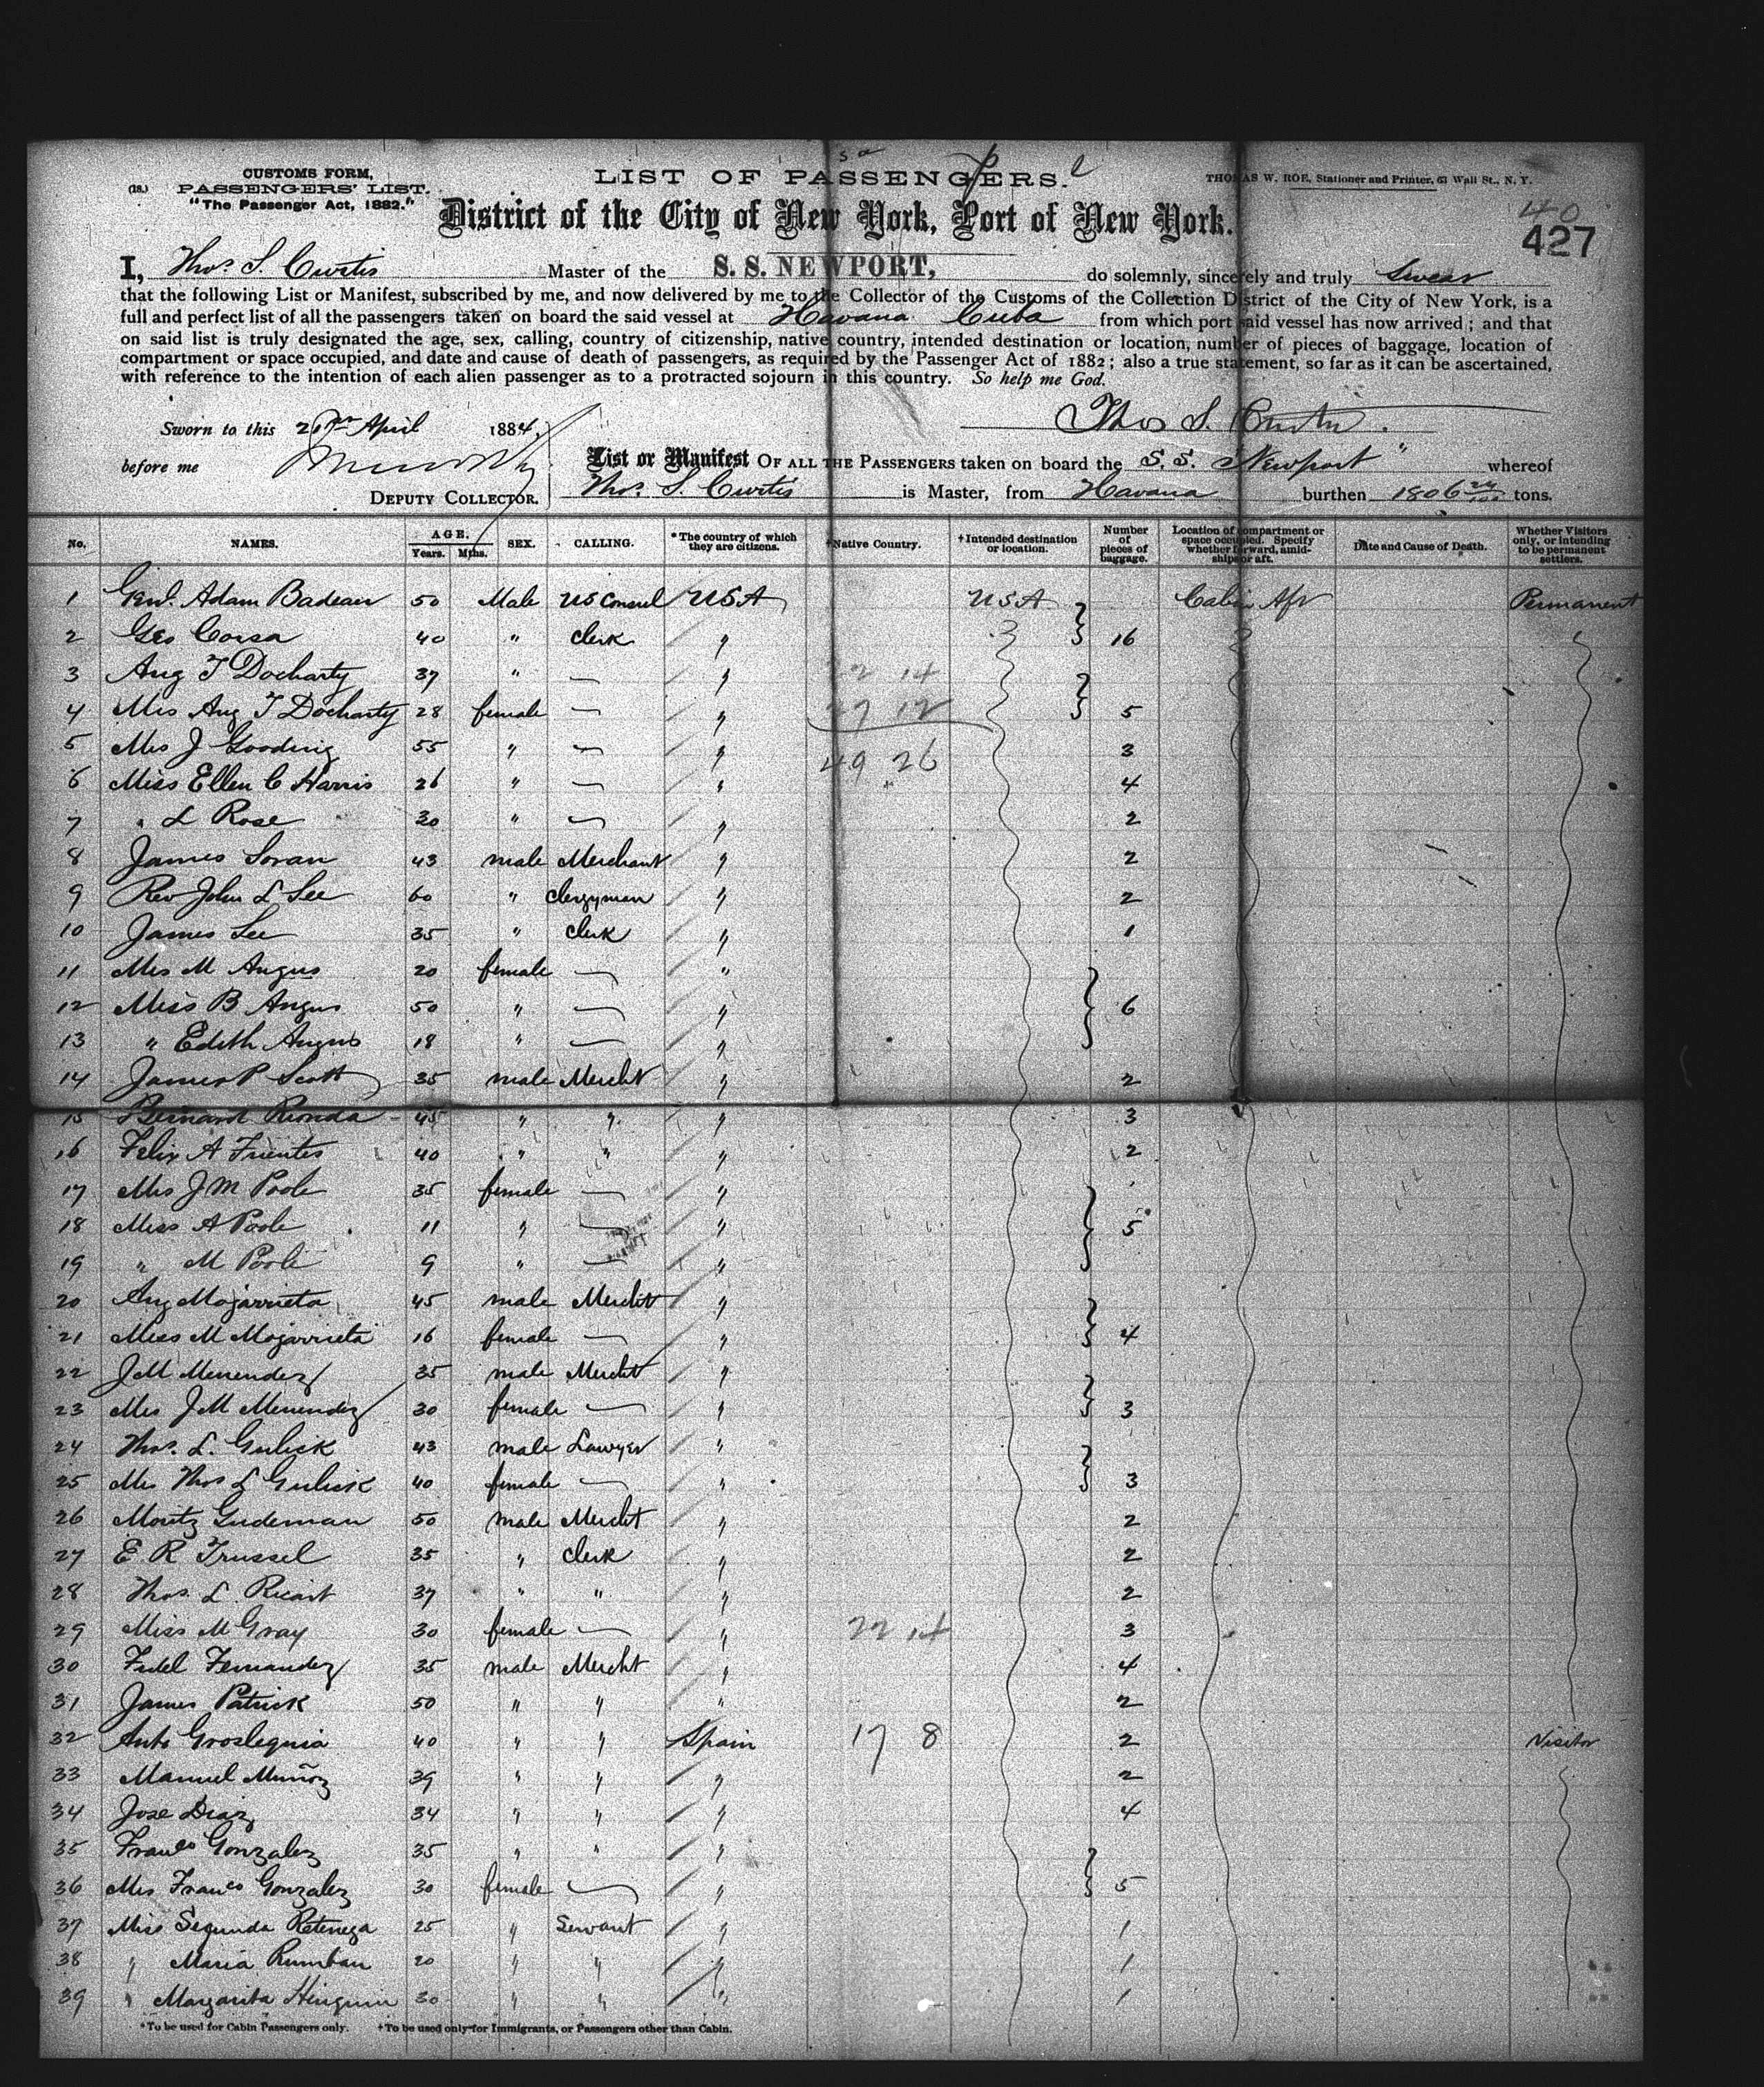 CUSTOMS FORM,
(18.) PASSENGERS' LIST.
"The Passenger Act, 1882."
LIST OF PASSENGERS.
THOMAS W. ROE, Stationer and Printer, 63 Wall St., N. Y.
District of the City of New York, Port of New York.
40
427
I, Thos. S. Curtis Master of the S. S. NEWPORT, do solemnly, sincerely and truly Swear
that the following List or Manifest, subscribed by me, and now delivered by me to the Collector of the Customs of the Collection District of the City of New York, is a
full and perfect list of all the passengers taken on board the said vessel at Havana Cuba from which port said vessel has now arrived; and that
on said list is truly designated the age, sex, calling, country of citizenship, native country, intended destination or location, number of pieces of baggage, location of
compartment or space occupied, and date and cause of death of passengers, as required by the Passenger Act of 1882; also a true statement, so far as it can be ascertained,
with reference to the intention of each alien passenger as to a protracted sojourn in this country. So help me God.
Thos S. Curtis.
Sworn to this April 1884,
before me
DEPUTY COLLECTOR.
List or Manifest OF ALL THE PASSENGERS taken on board the S. S. "Newport" whereof
Thos. S. Curtis is Master, from Havana burthen 1806 24/100 tons.
No. NAMES. AGE. Years. Mths. SEX. CALLING. *The country of which they are citizens. †Native Country. †Intended destination or location. Number of pieces of baggage. Location of compartment or space occupied. Specify whether forward, amidships or aft. Date and Cause of Death. Whether Visitors only, or intending to be permanent settlers.
1 Genl. Adam Badeau 50 Male US Consul USA USA Cabin Aft Permanent
2 Geo Corsa 40 " clerk " 16
3 Aug T Docharty 37 " — " 22 14
4 Mrs Aug T Docharty 28 female — " 27 12 5
5 Mrs J Gooding 55 " — " 49 26 3
6 Miss Ellen C Harris 26 " — " 4
7 " L Rose 30 " — " 2
8 James Soran 43 male Merchant " 2
9 Rev John L Lee 60 " Clergyman " 2
10 James Lee 35 " Clerk " 1
11 Mrs M Angus 20 female — "
12 Miss B Angus 50 " — " 6
13 " Edith Angus 18 " — "
14 James P Scott 35 male Mercht " 2
15 Bernard Rionda 45 " " " 3
16 Felix A Fuentes 40 " " " 2
17 Mrs J M Poole 35 female — "
18 Miss A Poole 11 " — " 5
19 " M Poole 9 " — "
20 Aug Mojarrieta 45 male Mercht "
21 Miss M Mojarrieta 16 female — " 4
22 J M Menendez 35 male Mercht "
23 Mrs J M Menendez 30 female — " 3
24 Thos. L. Gulick 43 male Lawyer "
25 Mrs Thos L Gulick 40 female — " 3
26 Moritz Gudeman 50 male Mercht " 2
27 E R Trussel 35 " Clerk " 2
28 Thos. L. Ricart 37 " " " 2
29 Miss M Gray 30 female — " 22 14 3
30 Fidel Fernandez 35 male Mercht " 4
31 James Patrick 50 " " " 2
32 Anto Groslequia 40 " " Spain 17 8 2 Visitor
33 Manuel Muñoz 39 " " " 2
34 Jose Diaz 34 " " " 4
35 Franco Gonzalez 35 " " "
36 Mrs Franco Gonzalez 30 female — " 5
37 Miss Segunda Retenega 25 " Servant " 1
38 " Maria Rumbau 20 " " " 1
39 " Margarita 30 " " " 1
*To be used for Cabin Passengers only. †To be used only for Immigrants, or Passengers other than Cabin.